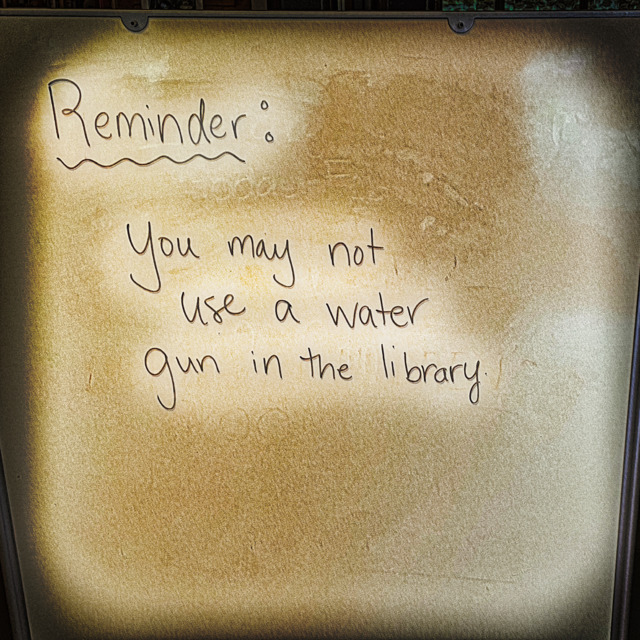 Reminder:
You may not
use a water
gun in the library.